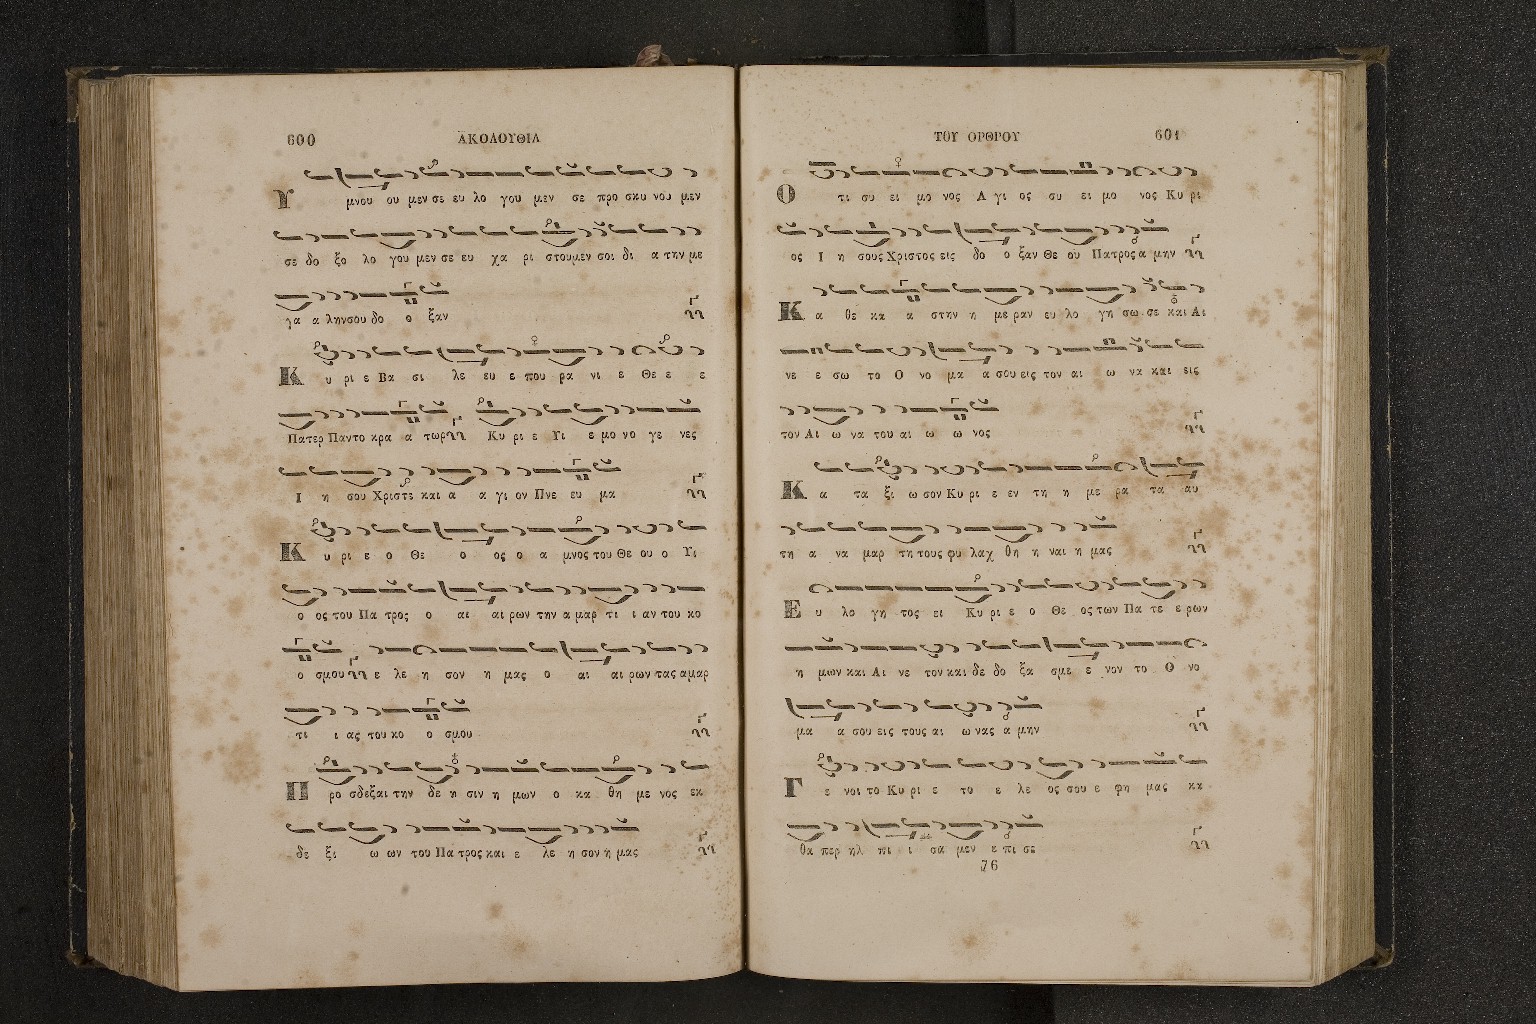 600 ΑΚΟΛΟΥΘΙΑ
Υ μνου ου μεν σε ευ λο γου μεν σε προ σκυ νου μεν
σε δο ξο λο γου μεν σε ευ χα ρι στουμεν σοι δι α την με
γα α ληνσου δο ο ξαν
Κ υ ρι ε Βα σι λε ευ ε που ρα νι ε Θε ε ε
Πατερ Παντο κρα α τωρ Κυ ρι ε Υι ε μο νο γε νες
Ι η σου Χριστε και α α γι ον Πνε ευ μα
Κ υ ρι ε ο Θε ο ος ο α μνος του Θε ου ο Υι
ο ος του Πα τρος ο αι αι ρων την α μαρ τι ι αν του κο
ο σμου ε λε η σον η μας ο αι αι ρων τας αμαρ
τι ι ας του κο ο σμου
Π ρο σδεξαι την δε η σιν η μων ο κα θη με νος εκ
δε ξι ω ων του Πα τρος και ε λε η σον η μας
ΤΟΥ ΟΡΘΡΟΥ 601
Ο τι συ ει μο νος Α γι ος συ ει μο νος Κυ ρι
ος Ι η σους Χριστος εις δο ο ξαν Θε ου Πατρος α μην
Κ α θε κα α στην η με ραν ευ λο γη σω σε και Αι
νε ε σω το Ο νο μα α σου εις τον αι ω να και εις
τον Αι ω να του αι ω ω νος
Κ α τα ξι ω σον Κυ ρι ε εν τη η με ρα τα αυ
τη α να μαρ τη τους φυ λαχ θη η ναι η μας
Ε υ λο γη τος ει Κυ ρι ε ο Θε ος των Πα τε ε ρων
η μων και Αι νε τον και δε δο ξα σμε ε νον το Ο νο
μα α σου εις τους αι ω νας α μην
Γ ε νοι το Κυ ρι ε το ε λε ος σου ε φη μας κα
θα περ ηλ πι ι σα μεν ε πι σε
76